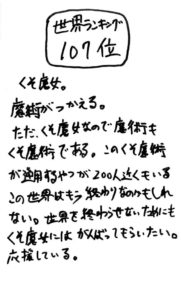 世界ランキング
107位
くそ魔女。
魔術がつかえる。
ただ、くそ魔女なので魔術も
くそ魔術である。このくそ魔術
が通用するやつが200人近くもいる
この世界はもう終わりなのかもしれ
ない。世界を終わらせないためにも
くそ魔女にはがんばってもらいたい。
応援している。